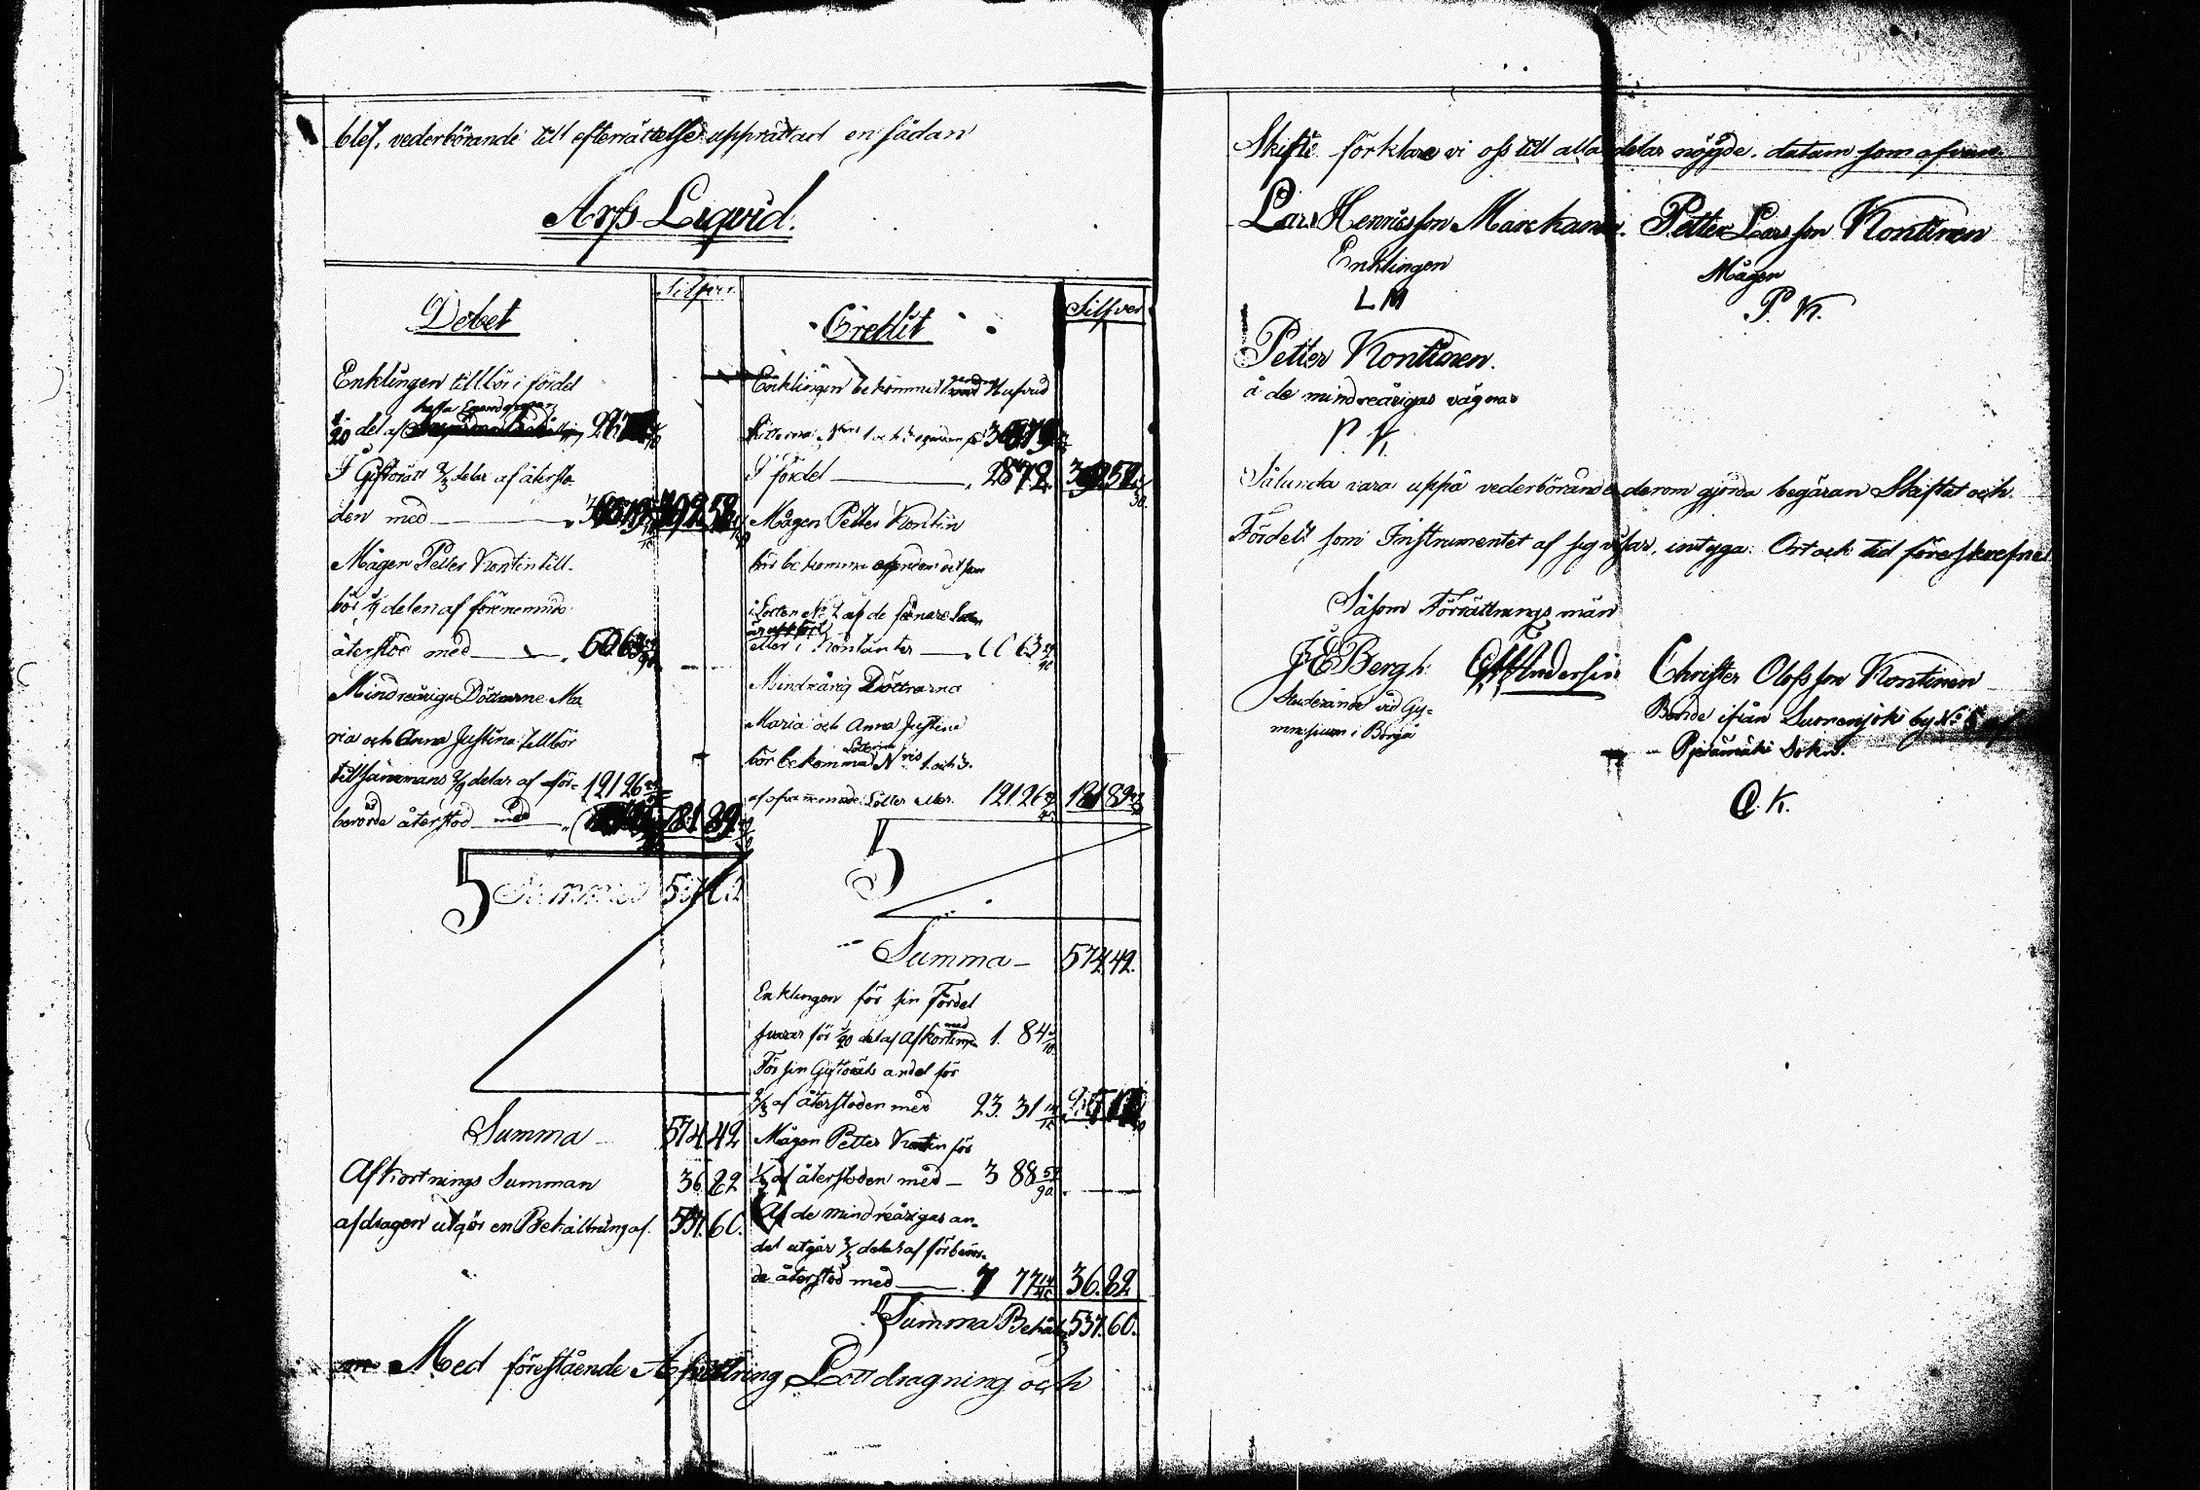 blef, vederbörande till efterrättelse upprättad en sådan
Arfs Liqvid.
Debet
Silfver
Enklingen tillbör i fördel
1/20 del af
I Giftorätt 2/3 delar af återsto-
den med
Mågen Petter Kontin till-
bör 1/9 delen af förenemnde
återstod med 60 63
Mindreåriga Döttrarne Ma-
ria och Anna Justina tillbör
tillsammans 2/9 delar af för- 121 26
berörde återstod med 181 89
5 Summa
Summa 574 42
Afkortnings Summan 36 82
afdragen utgör en Behållning af 537. 60.
Credit
Silfver
Enklingen bekommit genom Hufvud
I fördel 28 72.
Mågen Petter Kontin
bör bekomma
i Lotten No 2 af de
eller i Kontanter 60 63
Mindreårig Döttrarna
Maria och Anna Justina
bör bekomma Lotterne Nris 1. och 3.
af ofvannemnde Lotter eller 121 26 181 89
5
Summa 574 42.
Enklingen för sin Fördel
svarar för 1/20 del af Afkortningen med 1. 84
För sin Giftorätts andel för
2/3 af återstoden med 23. 31
Mågen Petter Kontin för
1/9 af återstoden med 3 88
Af de mindreårigas an-
del utgår 2/9 delar af förberör-
de återstod med 7 77 36. 82
Summa Behåll. 537. 60.
Med förestående Afvittring, Lottdragning och
Skifte förklare vi oss till alla delar nöjde, datum som ofvan.
Lars Henricsson Marckanen. Petter Larsson Kontinen
Enklingen Mågen
L M P. K.
Petter Kontinen.
å de mindreårigas vägnar
P. K.
Sålunda vara uppå vederbörandes derom gjorda begäran Skiftat och
Fördelt som Instrumentet af sig visar, intyga. Ort och tid föreskrefne
Såsom Förrättnings män
J E Bergh Andersin Christer Olofsson Kontinen
Studerande vid Gy- Bonde ifrån Suonenjoki by No 5 af
mnasium i Borgå Pjexämäki Sokn.
C. K.